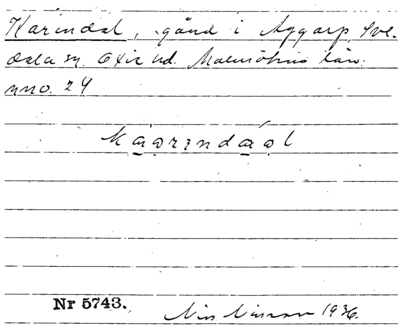 Karindal, gård i Aggarp Sve-
dala sn. Oxie hd. Malmöhus län.
nno. 24
kạarɪndạ́ạl
Nr 5743.
Nils Nilsson 1936.